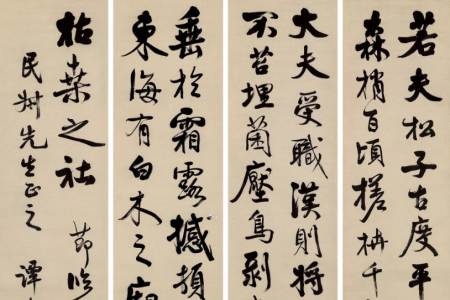 若夫松子古度平
森梢百頃槎枿千
大夫受職漢則將
不苔埋菌壓鳥剝
垂於霜露撼頓
東海有白木之廟
枯桑之社 節臨
先生正之 譚